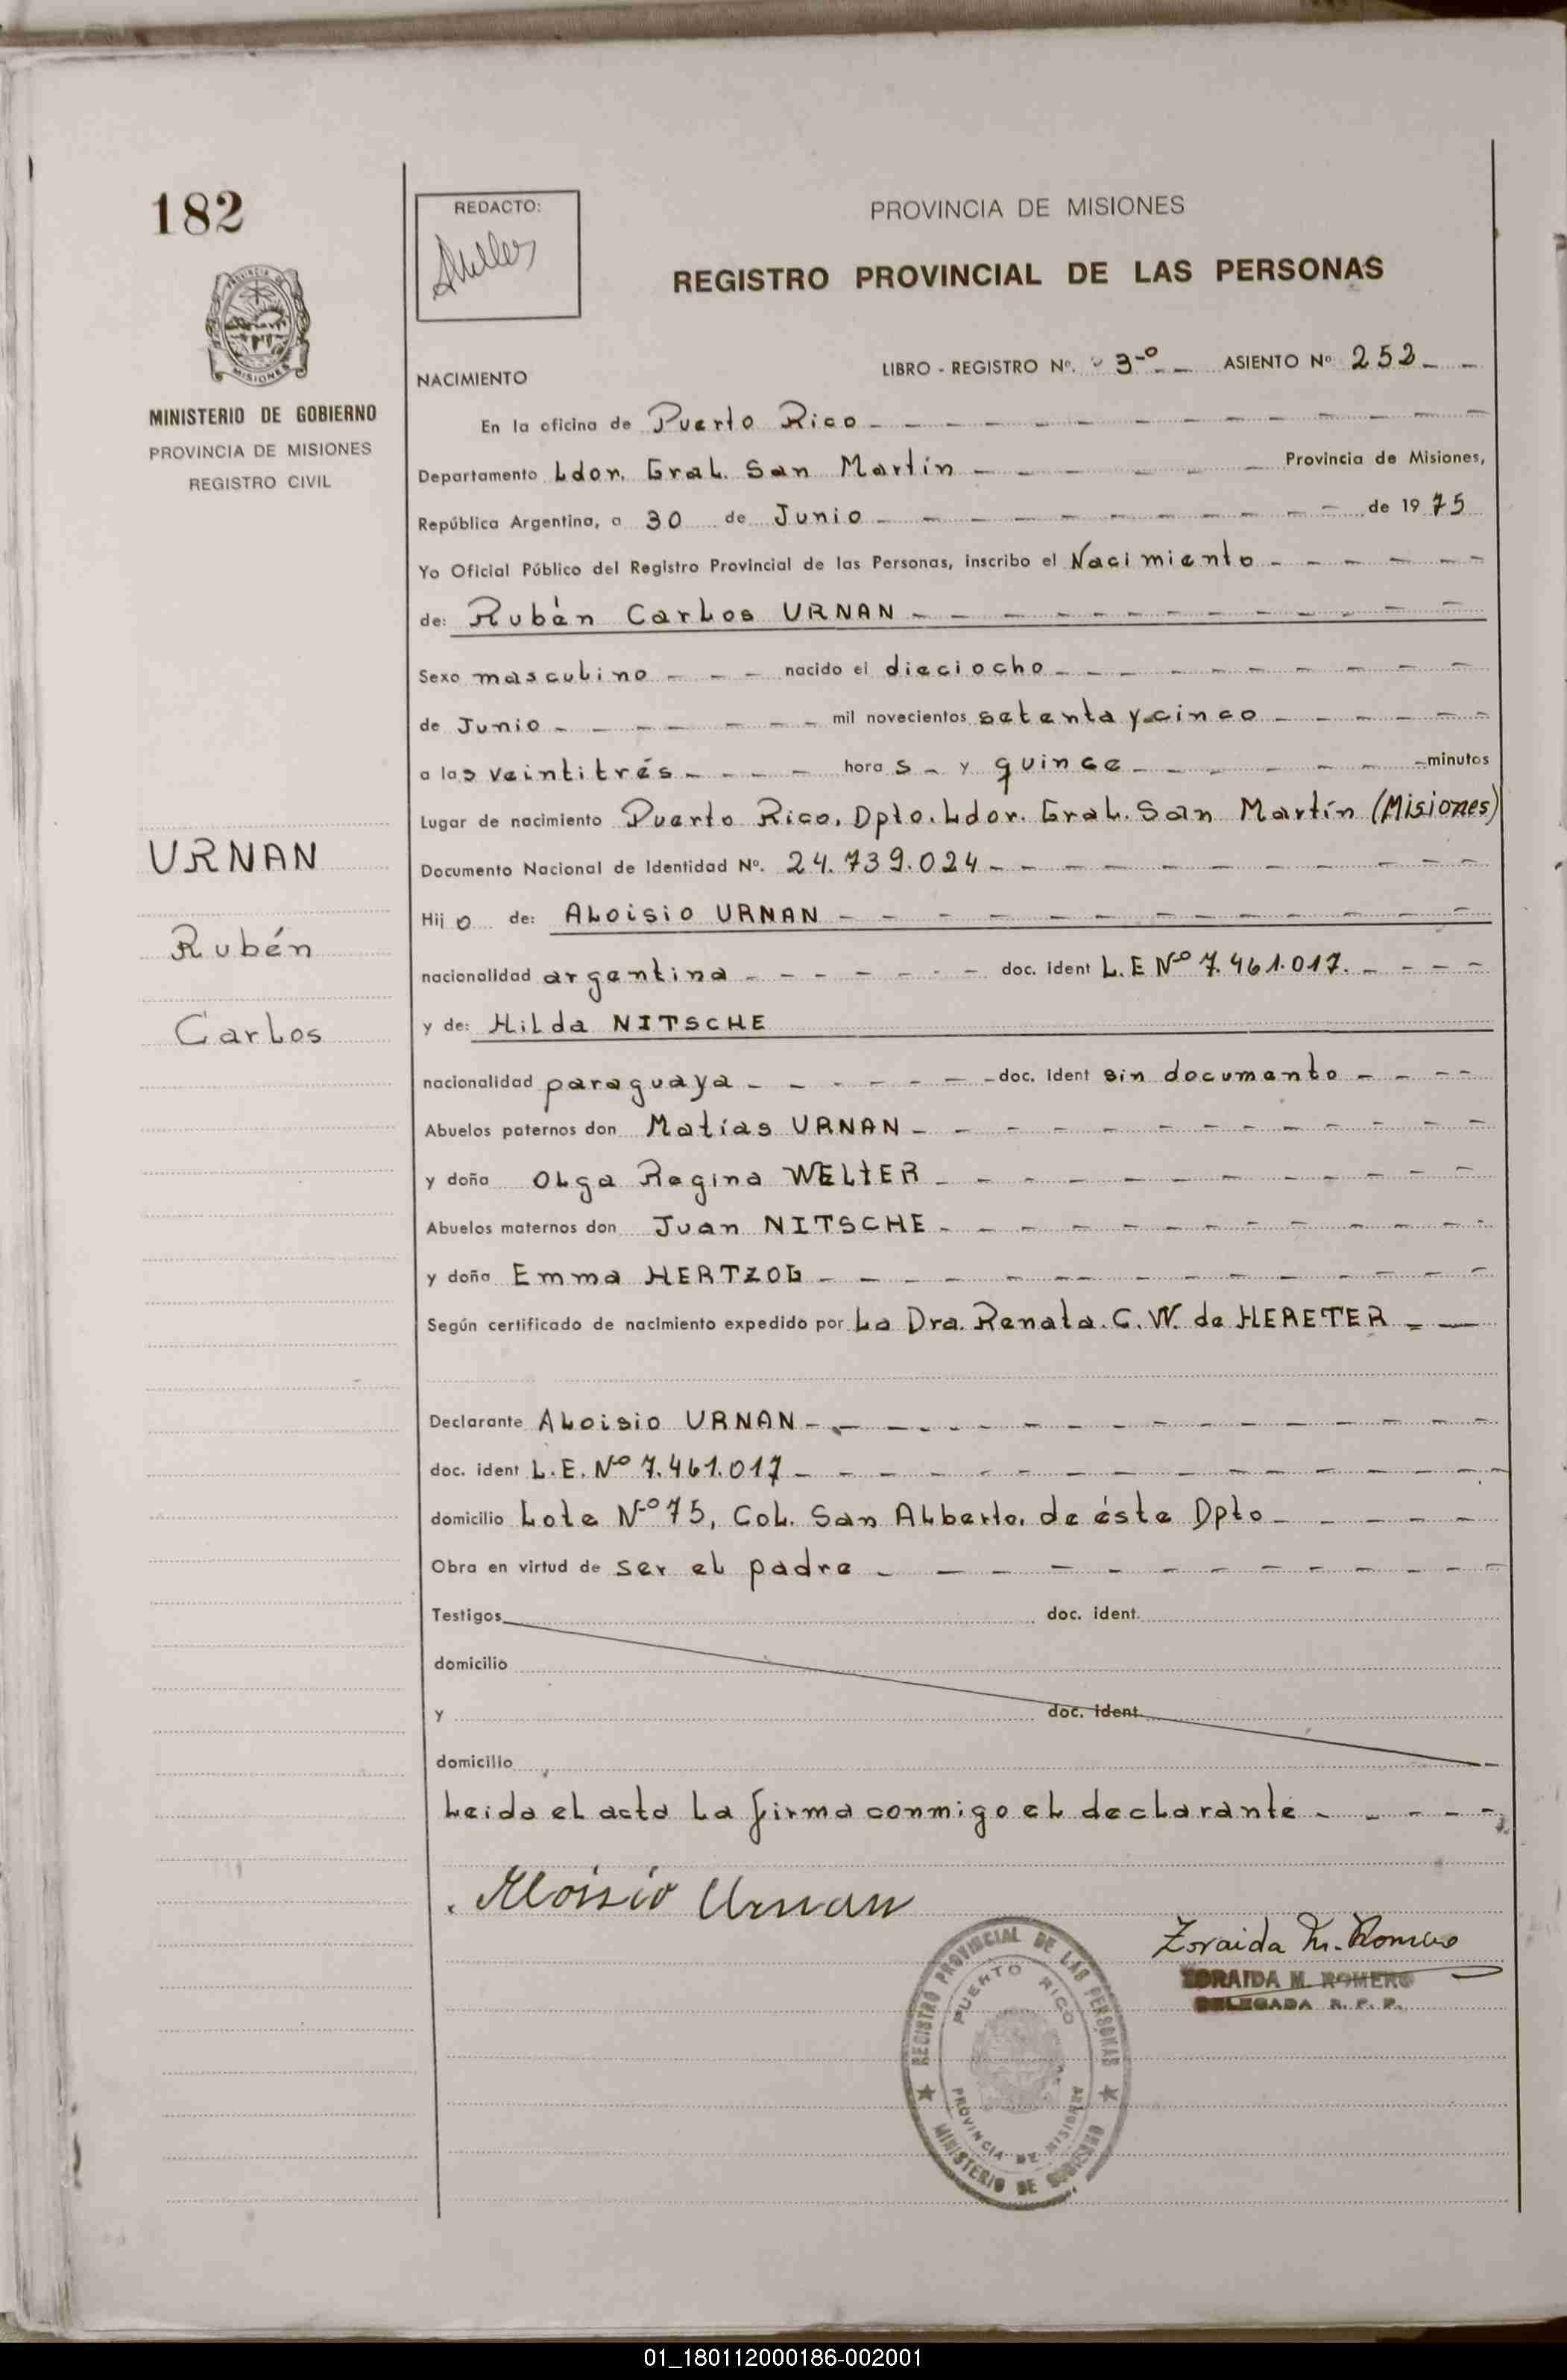 182
MISIONES
MINISTERIO DE GOBIERNO
PROVINCIA DE MISIONES
REGISTRO CIVIL
URNAN
Rubén
Carlos
REDACTO:
PROVINCIA DE MISIONES
REGISTRO PROVINCIAL DE LAS PERSONAS
NACIMIENTO LIBRO - REGISTRO Nº. 3-º ASIENTO Nº 252
En la oficina de Puerto Rico
Departamento Ldor. Gral. San Martín Provincia de Misiones,
República Argentina, a 30 de Junio de 1975
Yo Oficial Público del Registro Provincial de las Personas, inscribo el Nacimiento
de: Rubén Carlos URNAN
Sexo masculino nacido el dieciocho
de Junio mil novecientos setenta y cinco
a las veintitrés horas y quince minutos
Lugar de nacimiento Puerto Rico, Dpto. Ldor. Gral. San Martín (Misiones)
Documento Nacional de Identidad Nº. 24.739.024
Hijo de: Aloisio URNAN
nacionalidad argentina doc. ident L.E Nº 7.461.017.
y de: Hilda NITSCHE
nacionalidad paraguaya doc. ident sin documento
Abuelos paternos don Matías URNAN
y doña Olga Regina WELTER
Abuelos maternos don Juan NITSCHE
y doña Emma HERTZOG
Según certificado de nacimiento expedido por La Dra. Renata. C. W. de HERETER
Declarante Aloisio URNAN
doc. ident L.E. Nº 7.461.017
domicilio Lote Nº 75, Col. San Alberto, de éste Dpto
Obra en virtud de ser el padre
Testigos doc. ident.
domicilio
y doc. ident.
domicilio
Leida el acta la firma conmigo el declarante
Aloisio Urnan
Zoraida M. Romero
ZORAIDA M. ROMERO
DELEGADA R. P. P.
REGISTRO PROVINCIAL DE LAS PERSONAS
PUERTO RICO
PROVINCIA DE MISIONES
MINISTERIO DE GOBIERNO
01_180112000186-002001